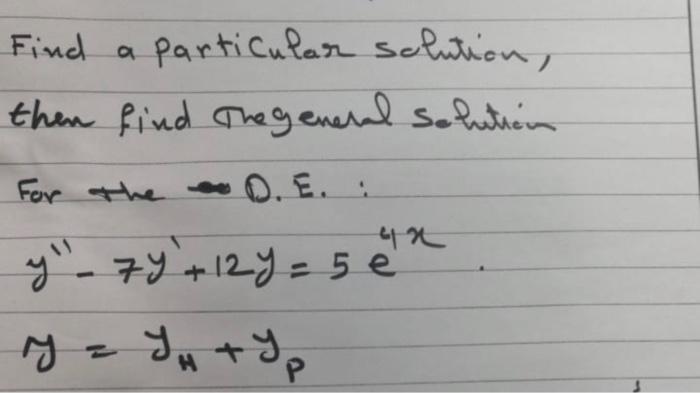 Find a particular solution,
then find the general solution
For the D.E. :
y'' - 7y' + 12y = 5 e^{4x} .
y = y_H + y_P